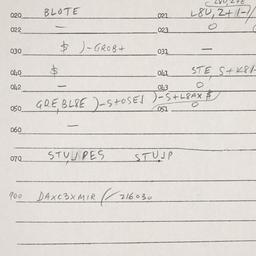 020 BLOTE 021 L8U,2+1-1/
022 — 023 0
030 $ )-GROB+ 031 —
040 $ 041 STE, S+K81-
042 — 043 0
050 GDE,BLBE )-S+OSE1 )-S+L8AX$/
— 051 0
060
070 STUJPES STUJP
900 DAXC3XMIR (/216030